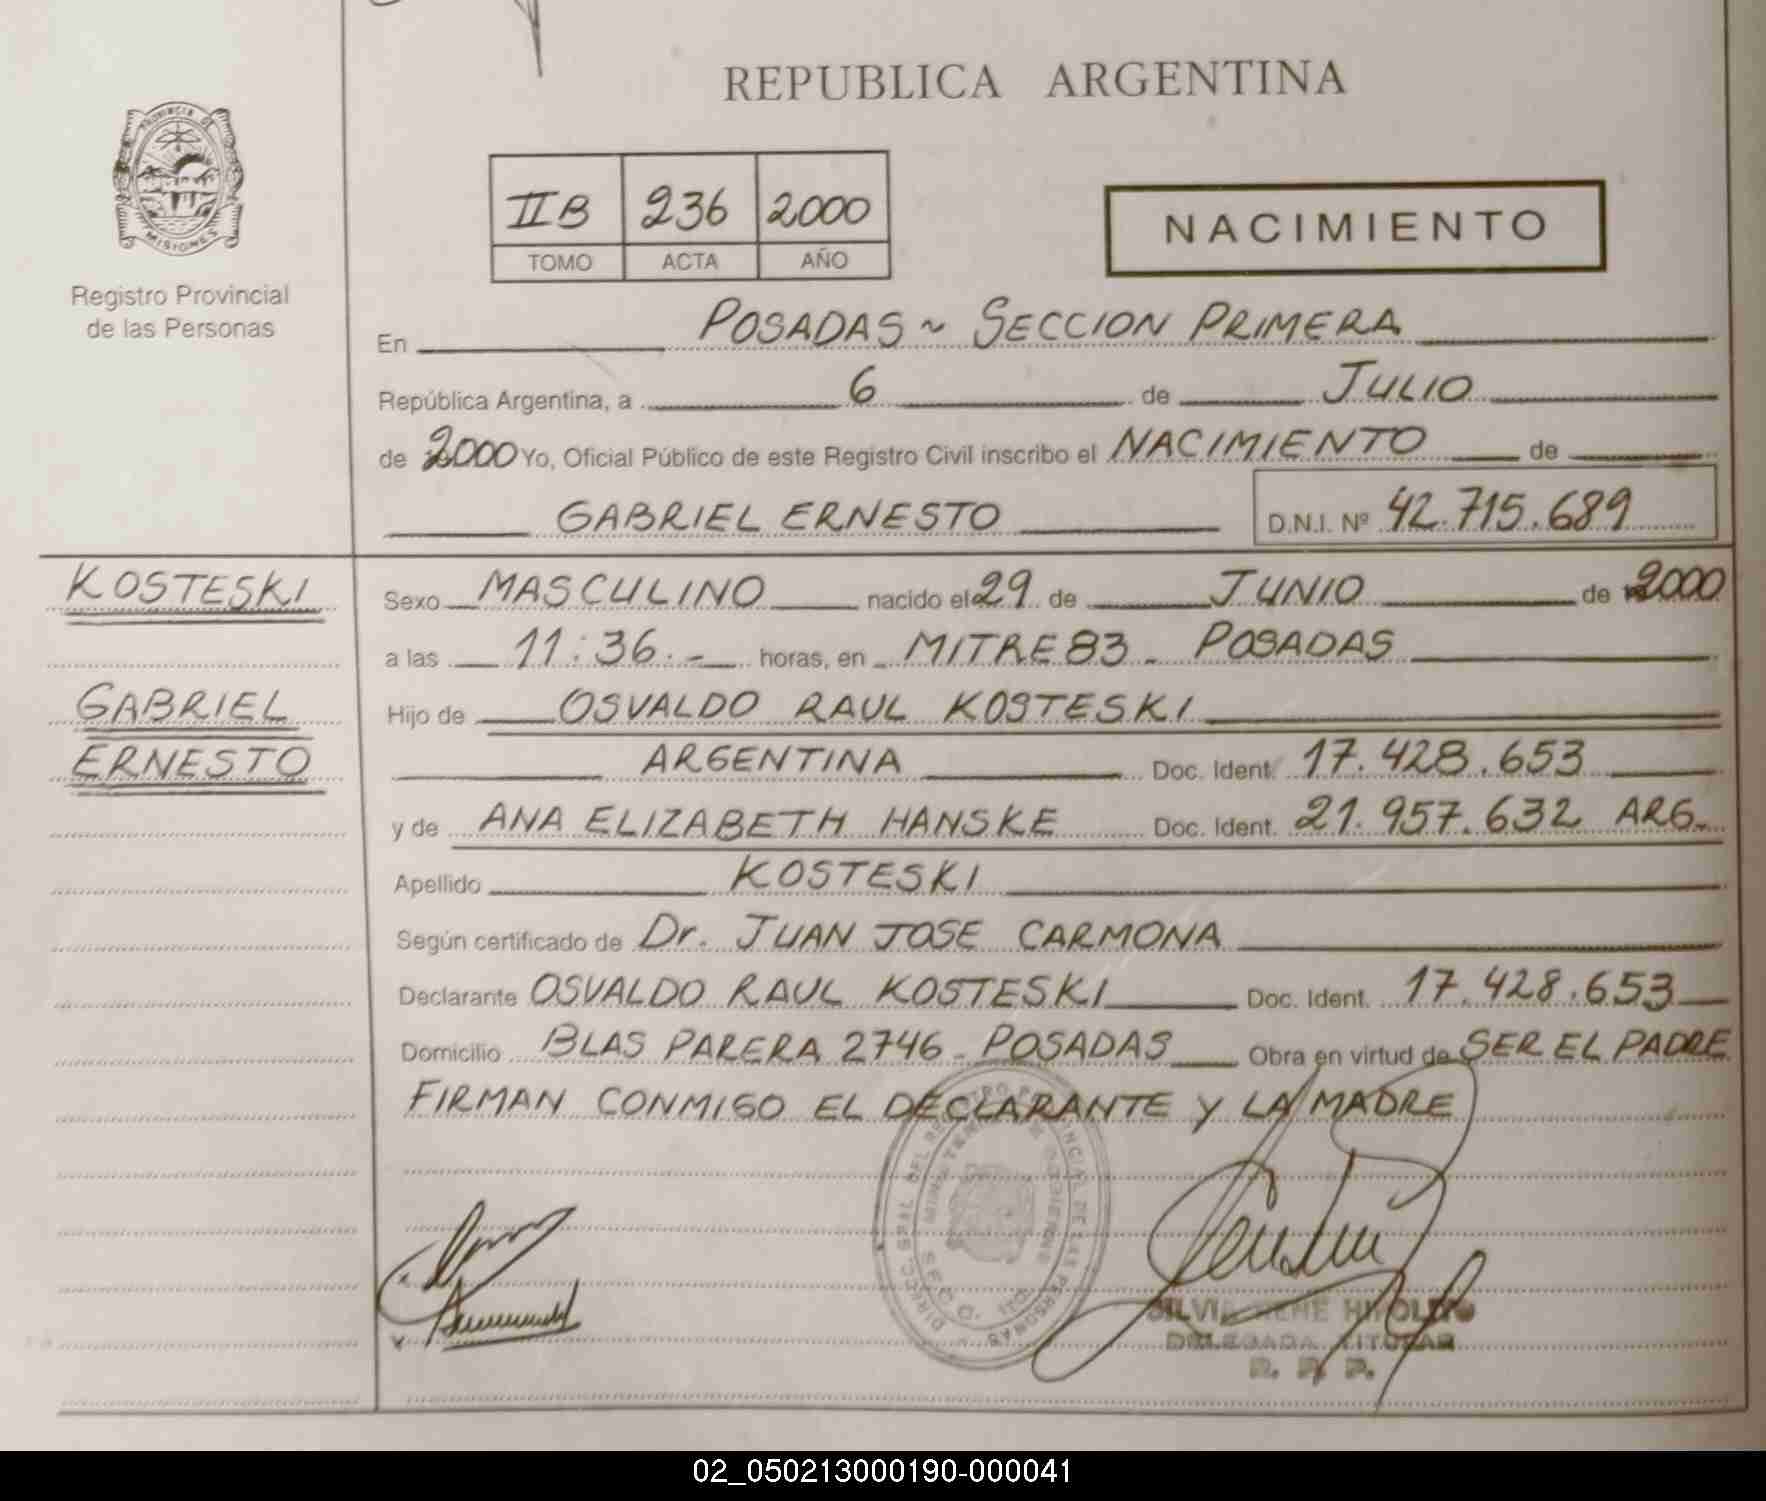 REPUBLICA ARGENTINA
PROVINCIA DE
MISIONES
Registro Provincial
de las Personas
II B 236 2000
TOMO ACTA AÑO
NACIMIENTO
En POSADAS ~ SECCION PRIMERA
República Argentina, a 6 de JULIO
de 2000 Yo, Oficial Público de este Registro Civil inscribo el NACIMIENTO de
GABRIEL ERNESTO D.N.I. Nº 42.715.689
KOSTESKI
GABRIEL
ERNESTO
Sexo MASCULINO nacido el 29 de JUNIO de 2000
a las 11:36.- horas, en MITRE 83 - POSADAS
Hijo de OSVALDO RAUL KOSTESKI
ARGENTINA Doc. Ident. 17.428.653
y de ANA ELIZABETH HANSKE Doc. Ident. 21.957.632 ARG.
Apellido KOSTESKI
Según certificado de Dr. JUAN JOSE CARMONA
Declarante OSVALDO RAUL KOSTESKI Doc. Ident. 17.428.653
Domicilio BLAS PARERA 2746 - POSADAS Obra en virtud de SER EL PADRE
FIRMAN CONMIGO EL DECLARANTE Y LA MADRE
DELEGADA TITULAR
R. P. P.
02_050213000190-000041